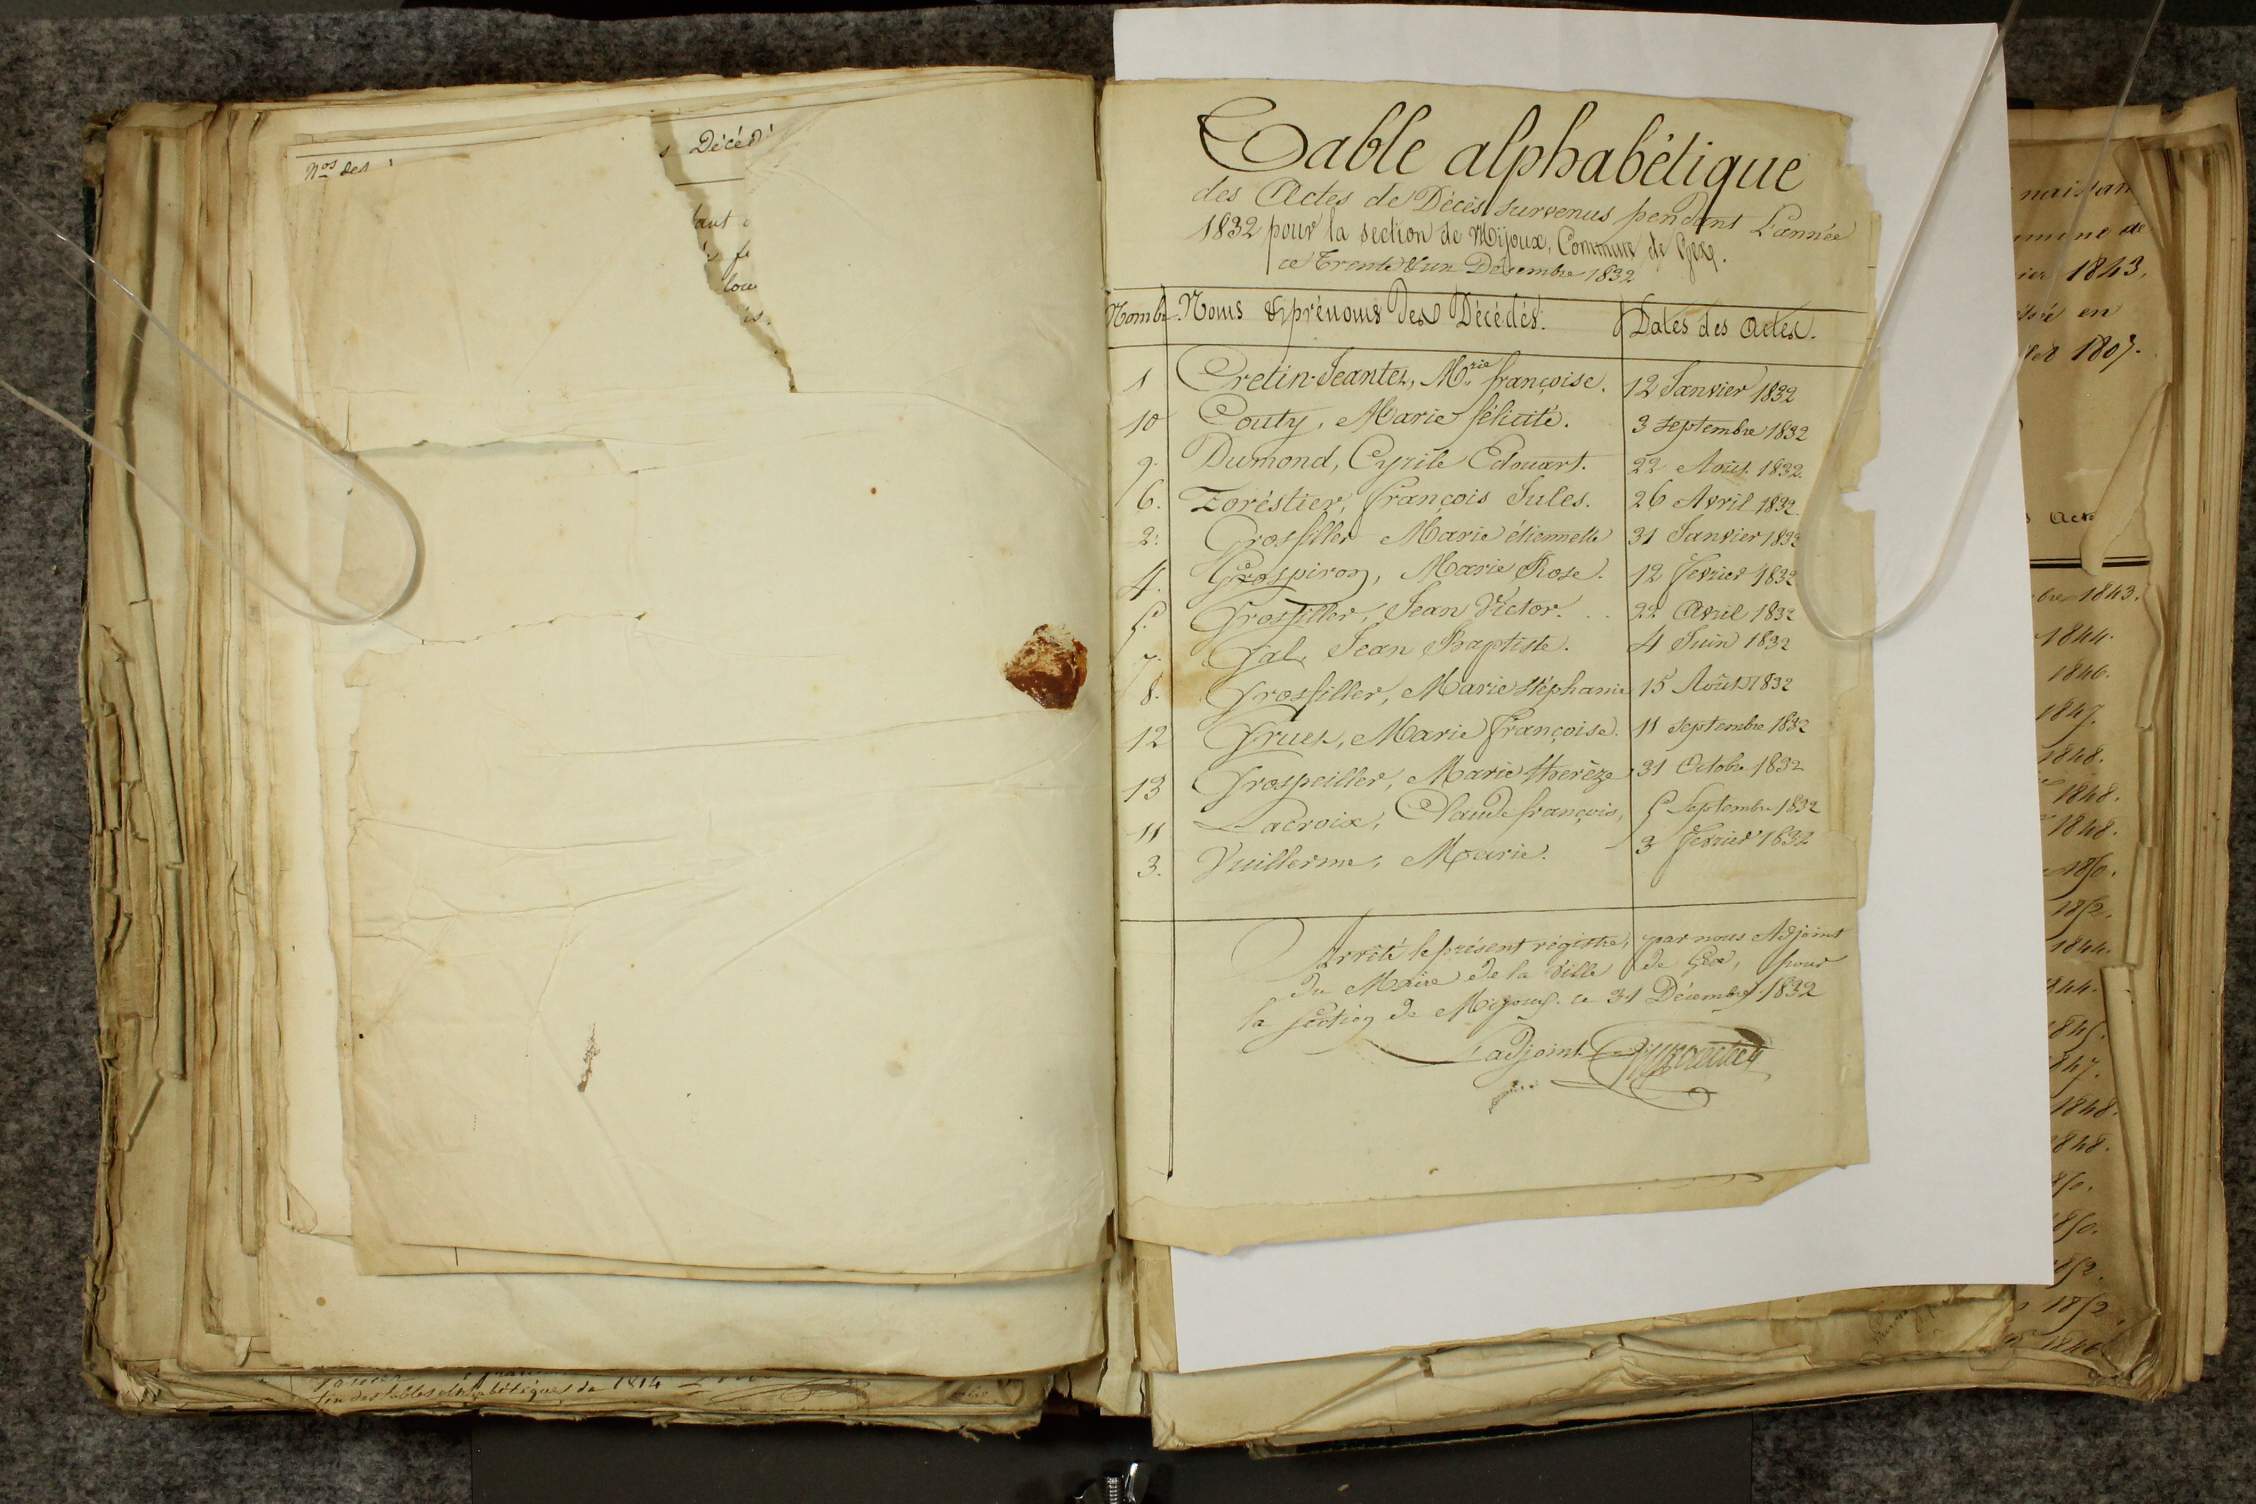 Nos des
s Décéd
Table alphabétique
des Actes de Décès survenus pendant L'année
1832 pour la section de Mijoux, Commune de Gex.
ce Trente & un Décembre 1832
Nombr. Noms & prénoms des Décédés. Dates des Actes.
1 Cretin-Jeantez, Mrie françoise. 12 Janvier 1832
10 Couty, Marie félicité. 3 septembre 1832
9. Dumond, Cyrile Edouart. 22 Août 1832.
6. Foréstier, françois Jules. 26 Avril 1832.
2. Grosfiller Marie étiennette 31 Janvier 1832
4. Grospiron, Marie Rose. 12 fevrier 1832
5. Grosfiller, Jean Victor. . . 22 Avril 1832
7. Gal, Jean Baptiste. 4 Juin 1832
8. Grosfiller, Marie Stéphanie 15 Août 1832
12 Gruet, Marie françoise. 11 septembre 1832
13 Grospeiller, Marie therèze 31 Octobre 1832
11 Lacroix, Claude françois, 5 Septembre 1832
3. Vuillerme, Marie. 3 fevrier 1832
Arrêté le présent régistre, par nous Adjoint
du Maire de la Ville de Gex, pour
la section de Mijoux. ce 31 Décembre 1832
L'adjoint
fin des tables alphabétiques de 1814
naissan
1843.
en
1807.
Acte
1843.
1844.
1846.
1847.
1848.
1848.
1848.
1850.
1852.
1844.
1844.
1845.
1847.
1848.
1848.
1850.
1850.
1852.
1852.
1846